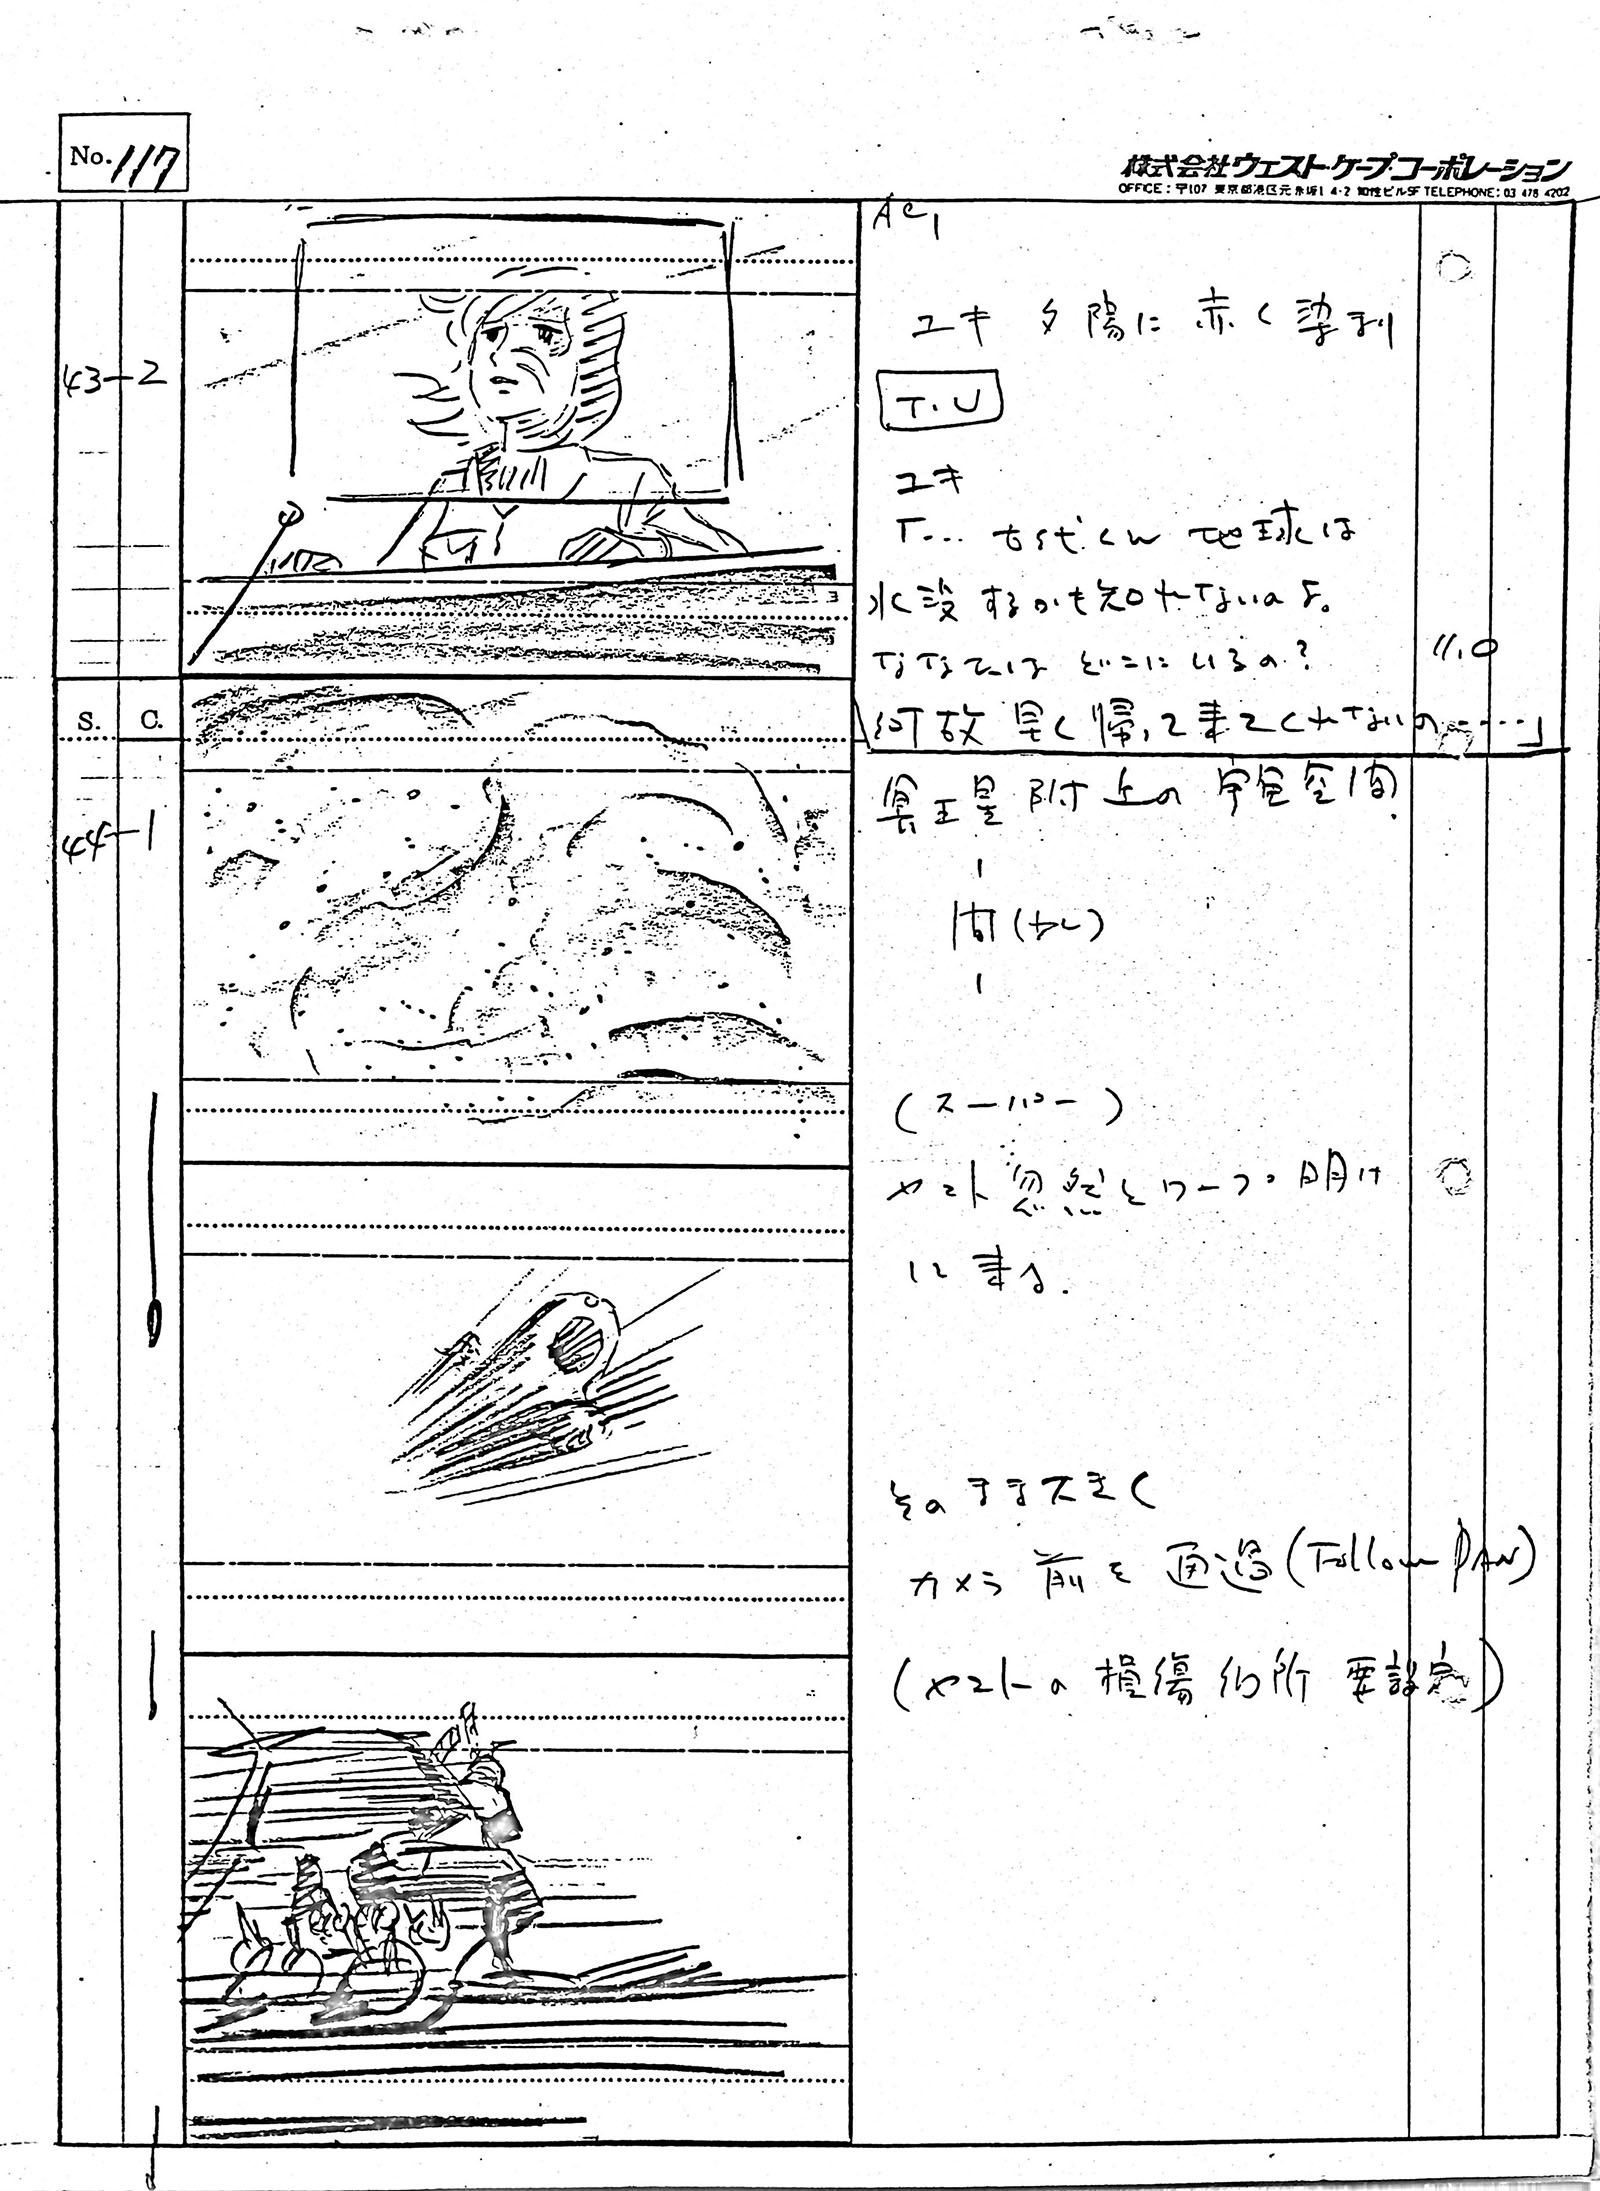 No. 117
株式会社ウエスト・ケープ・コーポレーション
OFFICE : 〒107 東京都港区元赤坂1 4-2 知性ビル5F TELEPHONE: 03 478 4202
43-2
AC,
ユキ 夕陽に赤く染まり
T.U
ユキ
「… 古代くん 地球は
水没するかも知れないのよ。
あなたはどこにいるの?
何故早く帰って来てくれないの……」
11.0
S. C.
44-1
冥王星附上の宇宙空間.
間(なし)
(スーパー)
ヤマト忽然とワープ明け
に来る.
そのまま大きく
カメラ前を通過(Follow PAN)
(ヤマトの損傷
所 要設定)